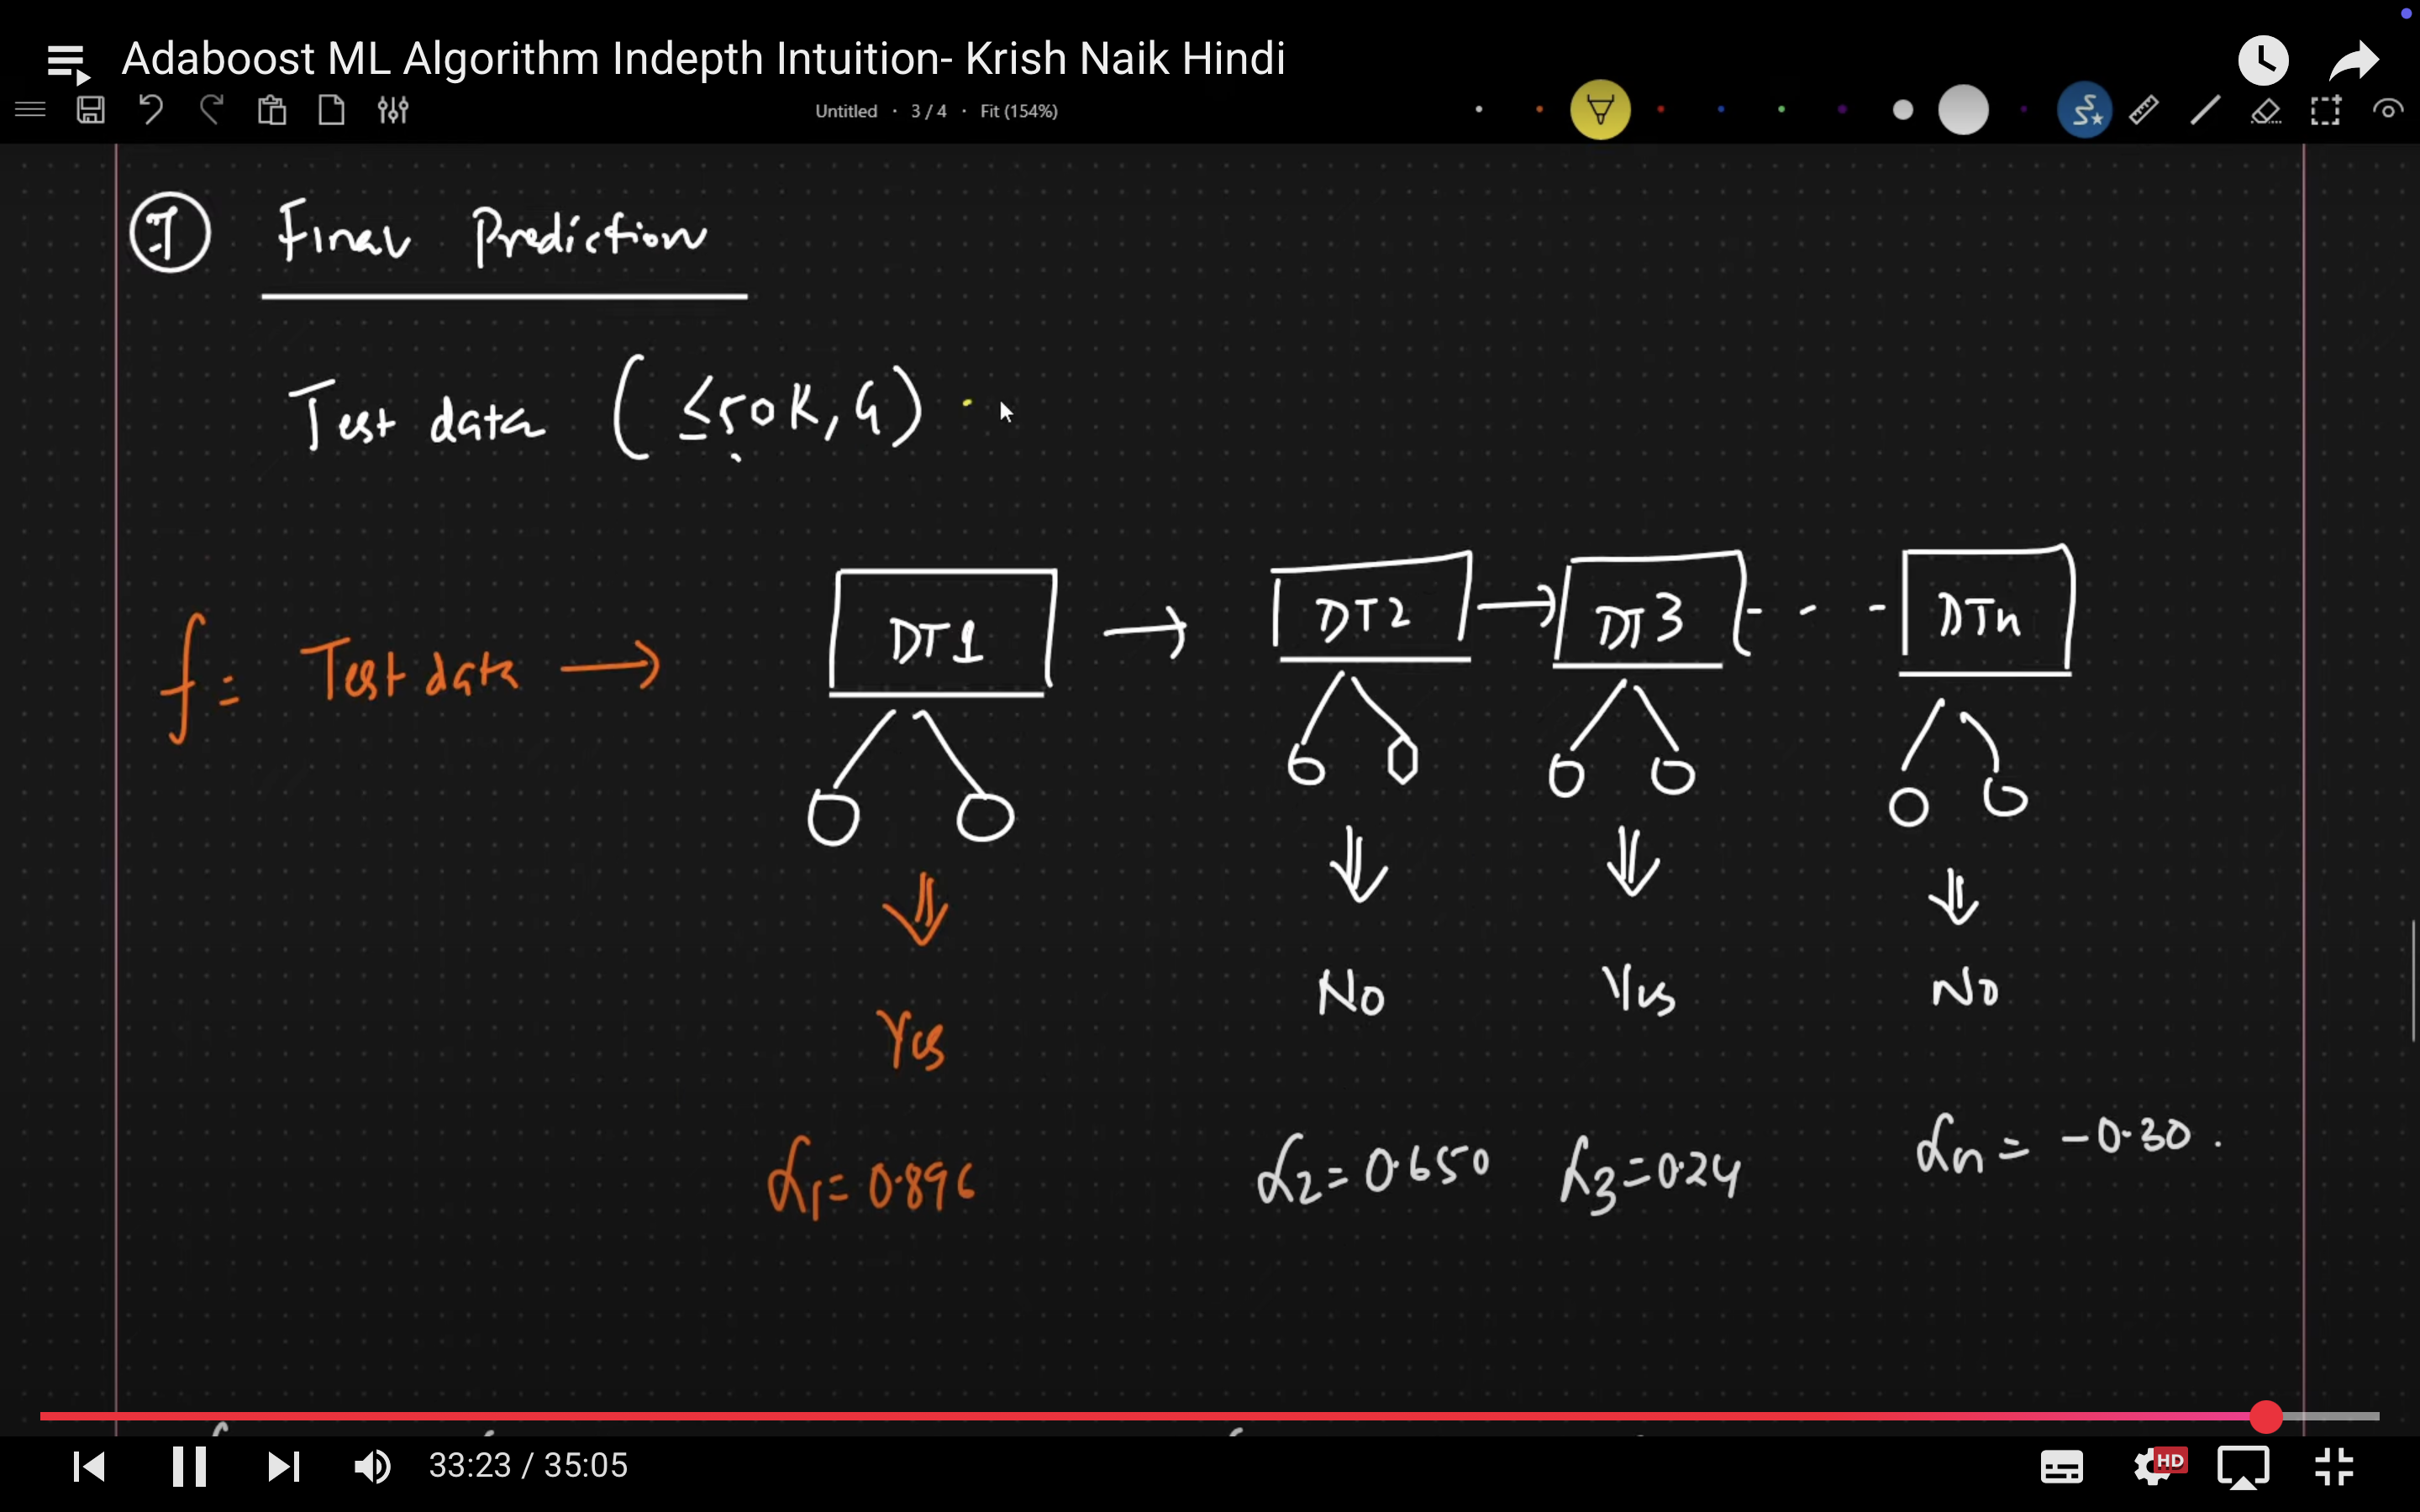 Adaboost ML Algorithm Indepth Intuition- Krish Naik Hindi
Untitled · 3 / 4 · Fit (154%)
Final Prediction
Test data (≤50K, G)
f = Test data → DT1 → DT2 → DT3 - - - DTn
Yes No Yes No
α1 = 0.896 α2 = 0.650 α3 = 0.24 αn = -0.30.
33:23 / 35:05
HD